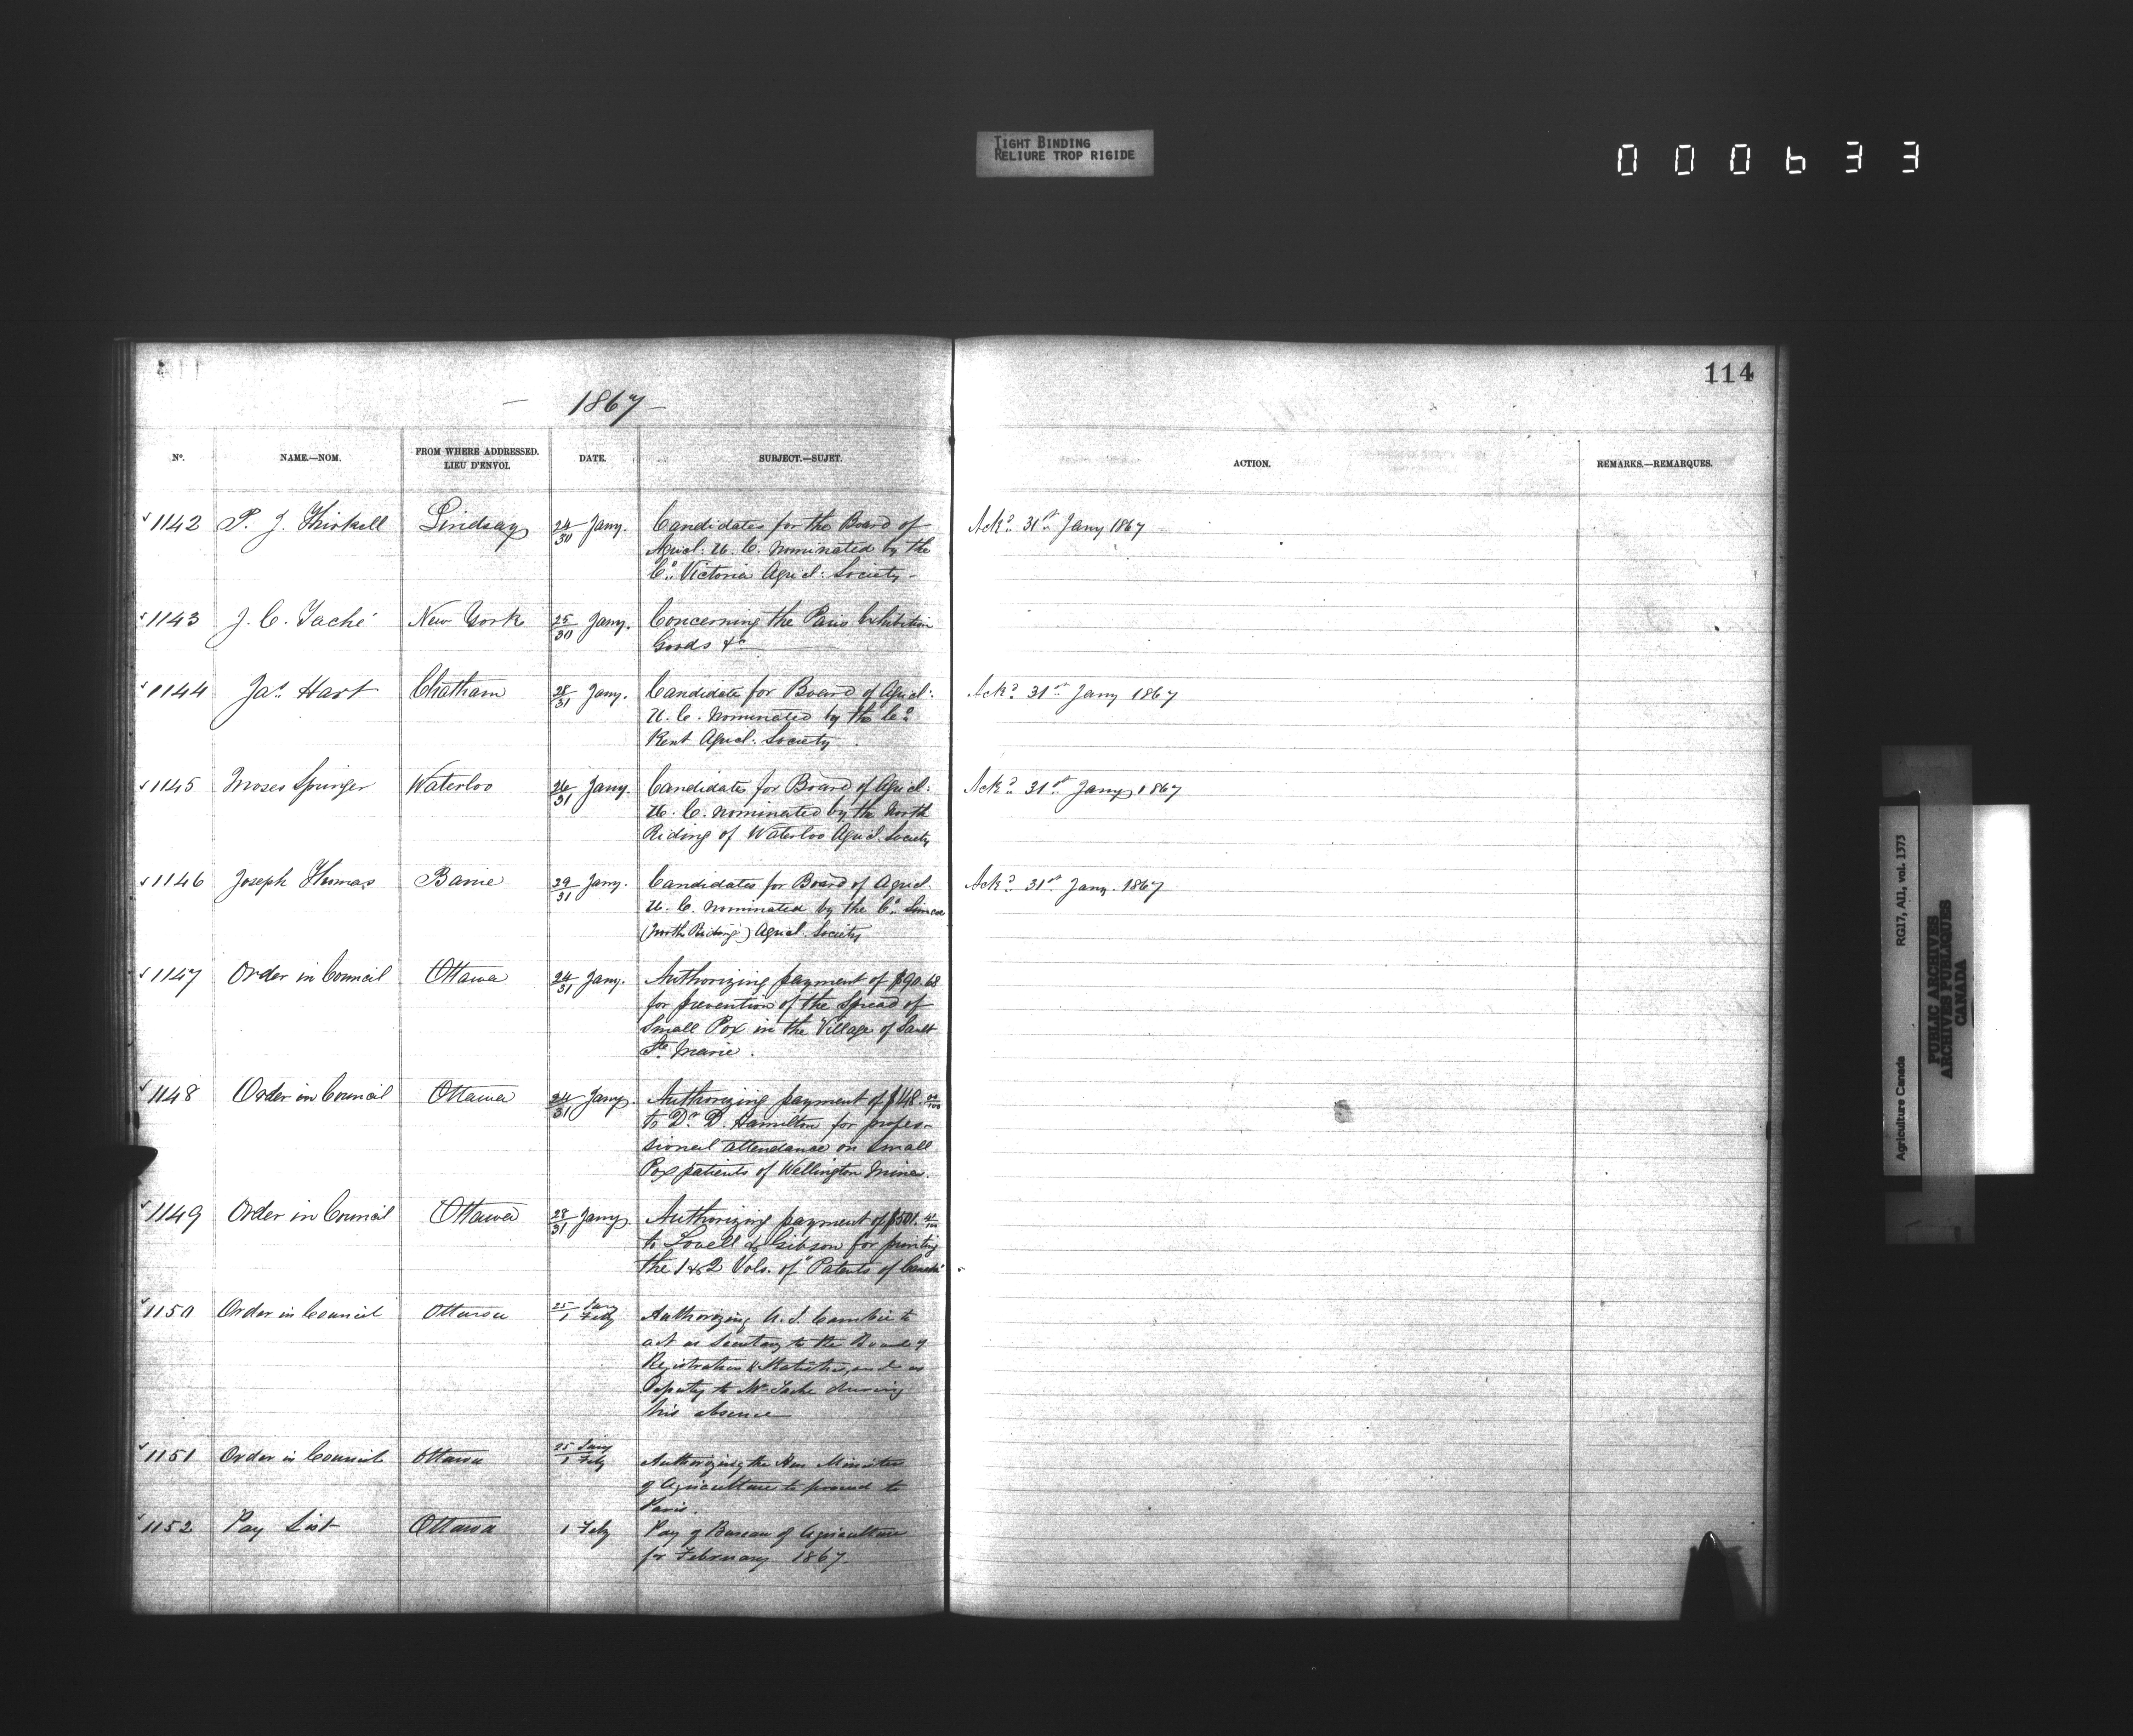 TIGHT BINDING
RELIURE TROP RIGIDE
000633
114
— 1867 —
No.
NAME.—NOM.
FROM WHERE ADDRESSED.
LIEU D'ENVOI.
DATE.
SUBJECT.—SUJET.
ACTION.
REMARKS.—REMARQUES.
1142 P. J. Thirkell Lindsay 24/30 Jany. Candidates for the Board of Ackd. 31st Jany 1867
Agricl: U. C. nominated by the
Co. Victoria Agricl: Society -
1143 J. C. Taché New York 25/30 Jany. Concerning the Paris Exhibition
Goods &c
1144 Jas. Hart Chatham 28/31 Jany. Candidate for Board of Agricl: Ackd. 31st Jany 1867
U. C. nominated by the Co.
Kent Agricl. Society
1145 Moses Springer Waterloo 26/31 Jany. Candidates for Board of Agricl: Ackd. 31st Jany 1867
U. C. nominated by the North
Riding of Waterloo Agricl. Society
1146 Joseph Thomas Barrie 29/31 Jany. Candidates for Board of Agricl. Ackd. 31st Jany. 1867
U. C. nominated by the Co. Simcoe
(North Riding) Agricl. Society
1147 Order in Council Ottawa 24/31 Jany. Authorizing payment of $90.68
for prevention of the Spread of
Small Pox in the Village of Sault
Ste. Marie.
1148 Order in Council Ottawa 24/31 Jany. Authorizing payment of $148.
to Dr. D. Hamilton for profes-
sional attendance on Small
Pox patients of Wellington Mines.
1149 Order in Council Ottawa 28/31 Jany. Authorizing payment of $501.
to Lovell & Gibson for printing
the 1 & 2 Vols. of "Patents of Canada"
1150 Order in Council Ottawa 25 Jany / 1 Feby Authorizing A. J. Cambie to
act as Secretary to the Board of
Registration & Statistics, and as
Deputy to Mr. Taché during
his absence
1151 Order in Council Ottawa 25 Jany / 1 Feby Authorizing the Hon Minister
of Agriculture to proceed to
Paris.
1152 Pay List Ottawa 1 Feby Pay of Bureau of Agriculture
for February 1867
Agriculture Canada RG17, AI1, vol. 1373
PUBLIC ARCHIVES
ARCHIVES PUBLIQUES
CANADA